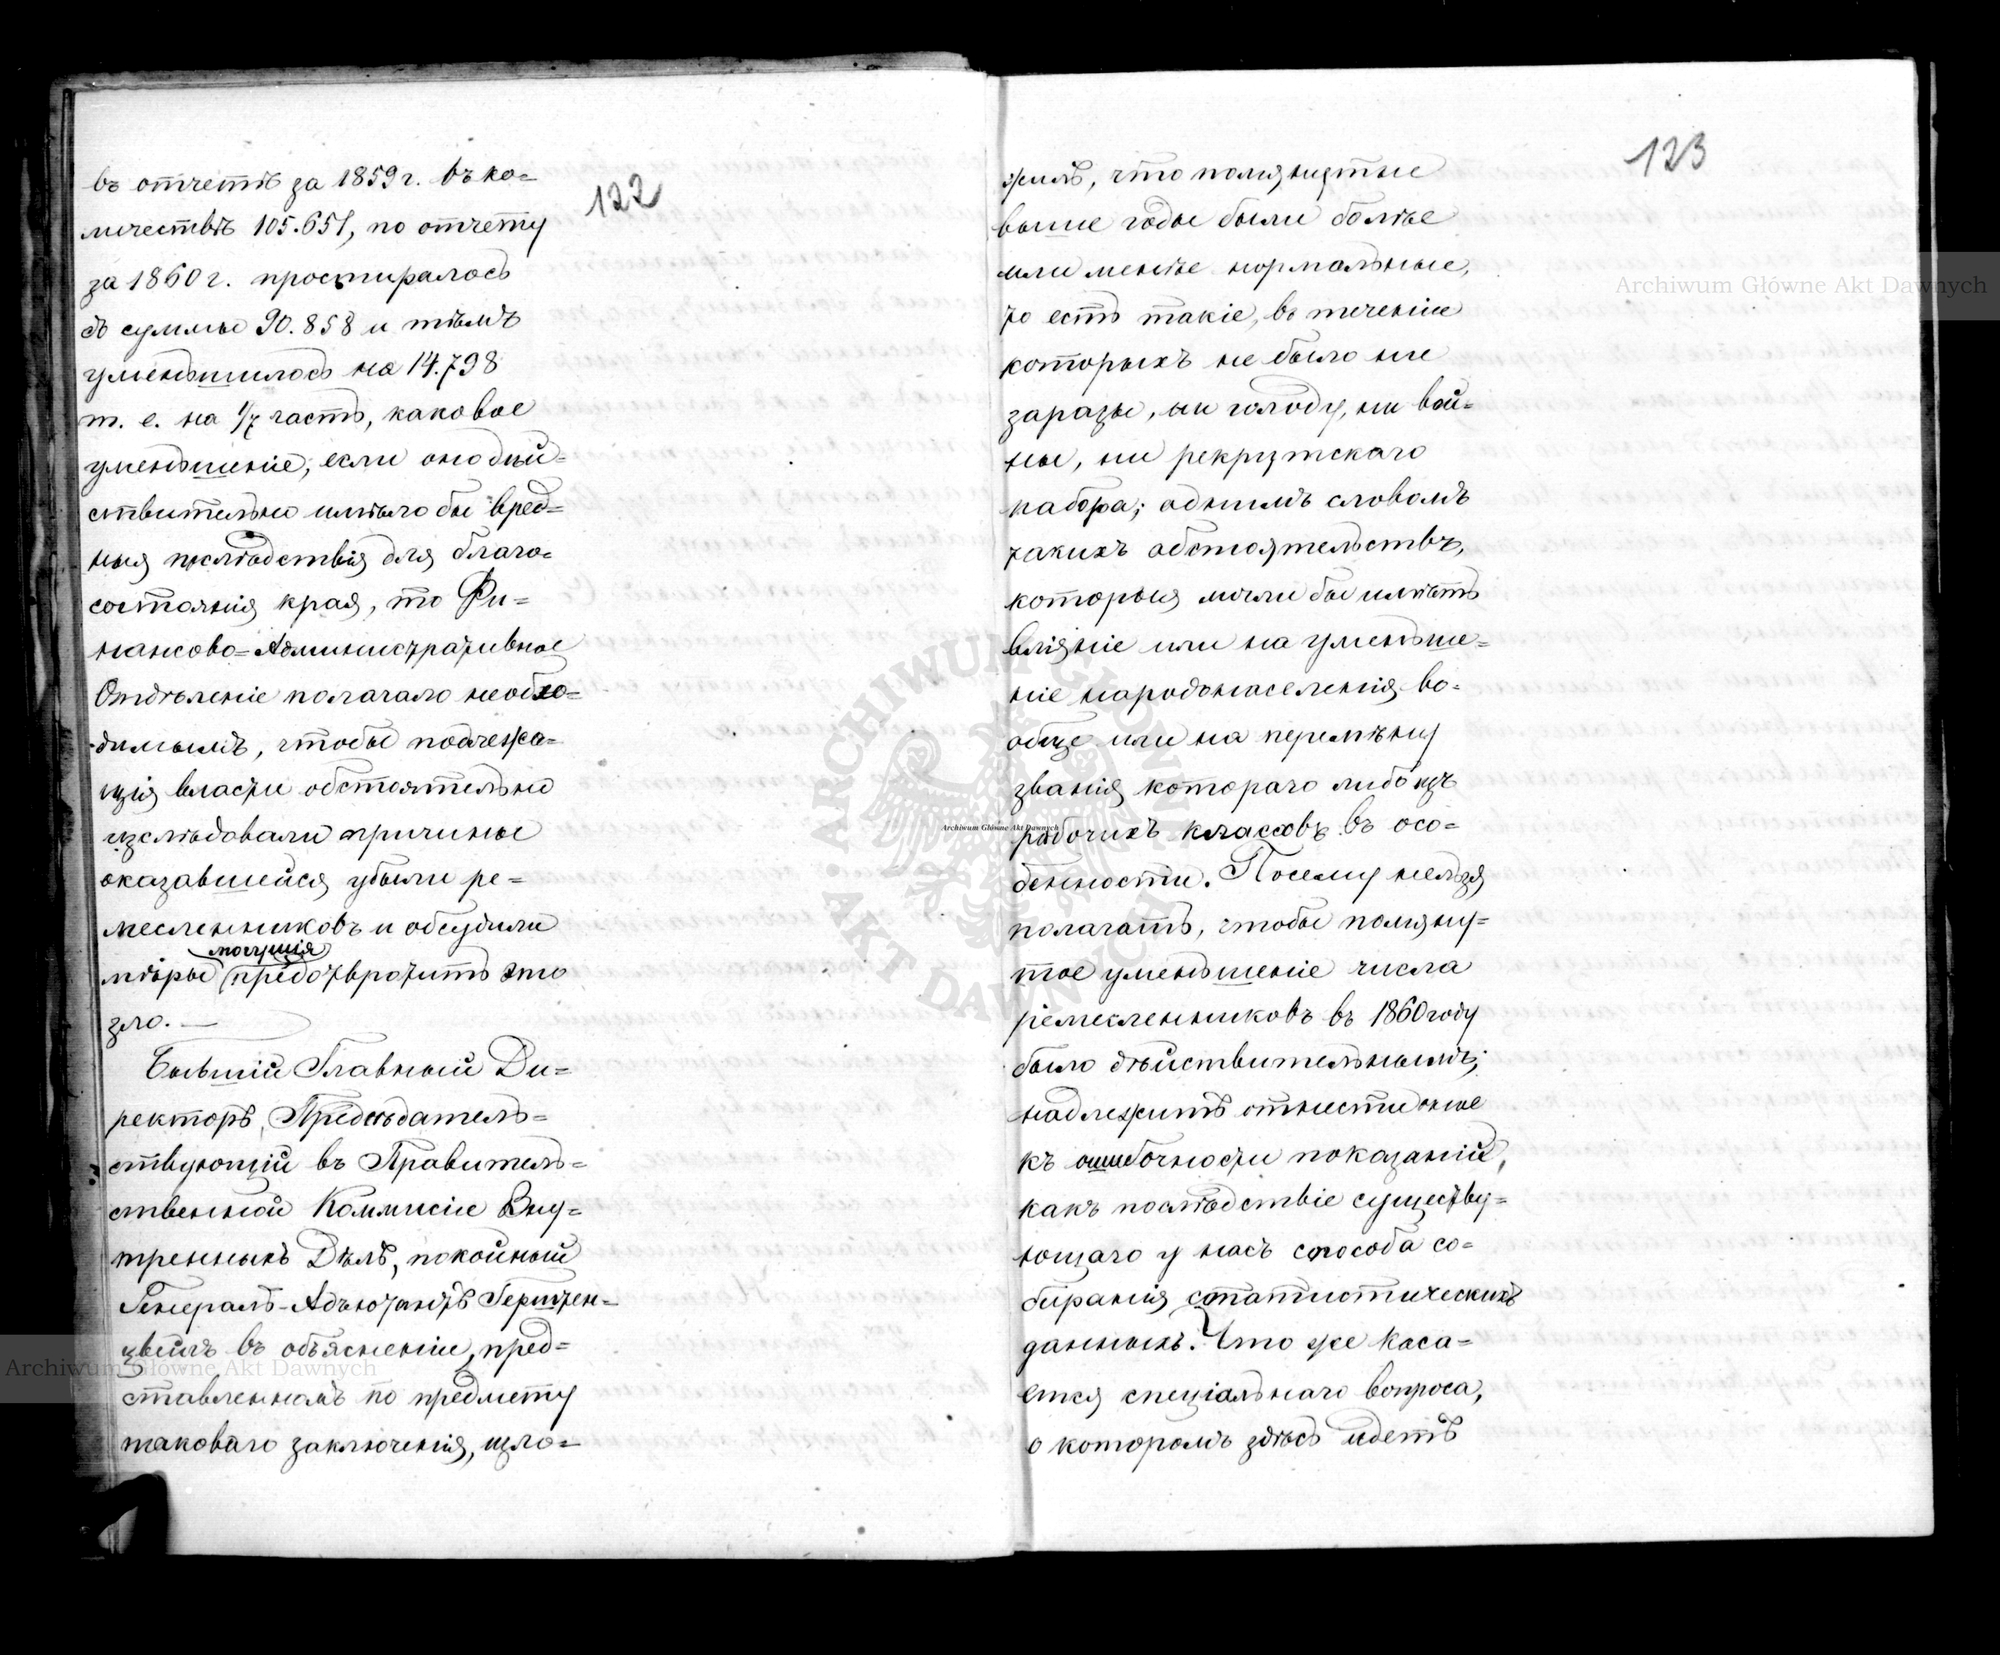 122
въ отчетѣ за 1859 г. въ ко=
личествѣ 105.651, по отчету
за 1860 г. простиралось
до суммы 90.858 и тѣмъ
уменьшилось на 14.798
т. е. на 1/7 часть, каковое
уменьшеніе, если оно дѣй=
ствительно имѣло бы вред=
ныя послѣдствія для благо=
состоянія края, то Фи=
нансово=Административное
Отдѣленіе полагало необхо=
димымъ, чтобы подлежа=
щія власти обстоятельно
изслѣдовали причины
оказавшейся убыли ре=
месленниковъ и обсудили
могущія
мѣры предотвратить это
зло. —
Бывшій Главный Ди=
ректоръ, Предсѣдатель=
ствующій въ Правитель=
ственной Коммисіи Вну=
тренныхъ Дѣлъ, покойный
Генералъ-Адъютантъ Герштен=
цвейгъ въ объясненіи, пред=
ставленномъ по предмету
таковаго заключенія, изло=
123
жилъ, что помянутые
выше годы были болѣе
или менѣе нормальные,
то есть такіе, въ теченіи
которыхъ не было ни
заразы, ни голоду, ни вой=
ны, ни рекрутскаго
набора; однимъ словомъ
такихъ обстоятельствъ,
которыя могли бы имѣть
вліяніе или на уменьше=
ніе народонаселенія во=
обще или на перемѣну
званія котораго либо изъ
рабочихъ классовъ въ осо=
бенности. Посему нельзя
полагать, чтобы помяну=
тое уменьшеніе числа
ремесленниковъ въ 1860 году
было дѣйствительнымъ;
надлежитъ отнести оное
къ ошибочности показаній,
какъ послѣдствіе существу=
ющаго у насъ способа со=
биранія статистическихъ
данныхъ. Что же каса=
ется спеціальнаго вопроса,
о которомъ здѣсь идетъ
Archiwum Główne Akt Dawnych
Archiwum Główne Akt Dawnych
Archiwum Główne Akt Dawnych
ARCHIWUM GŁÓWNE AKT DAWNYCH